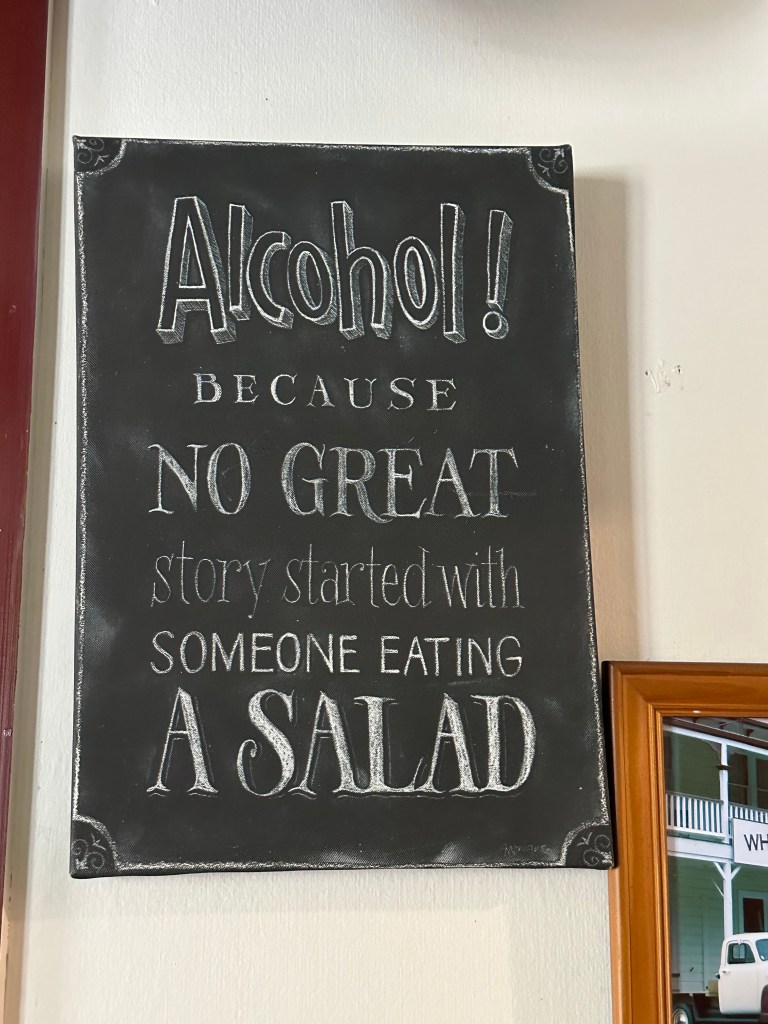 Alcohol!
BECAUSE
NO GREAT
story started with
SOMEONE EATING
A SALAD
WH